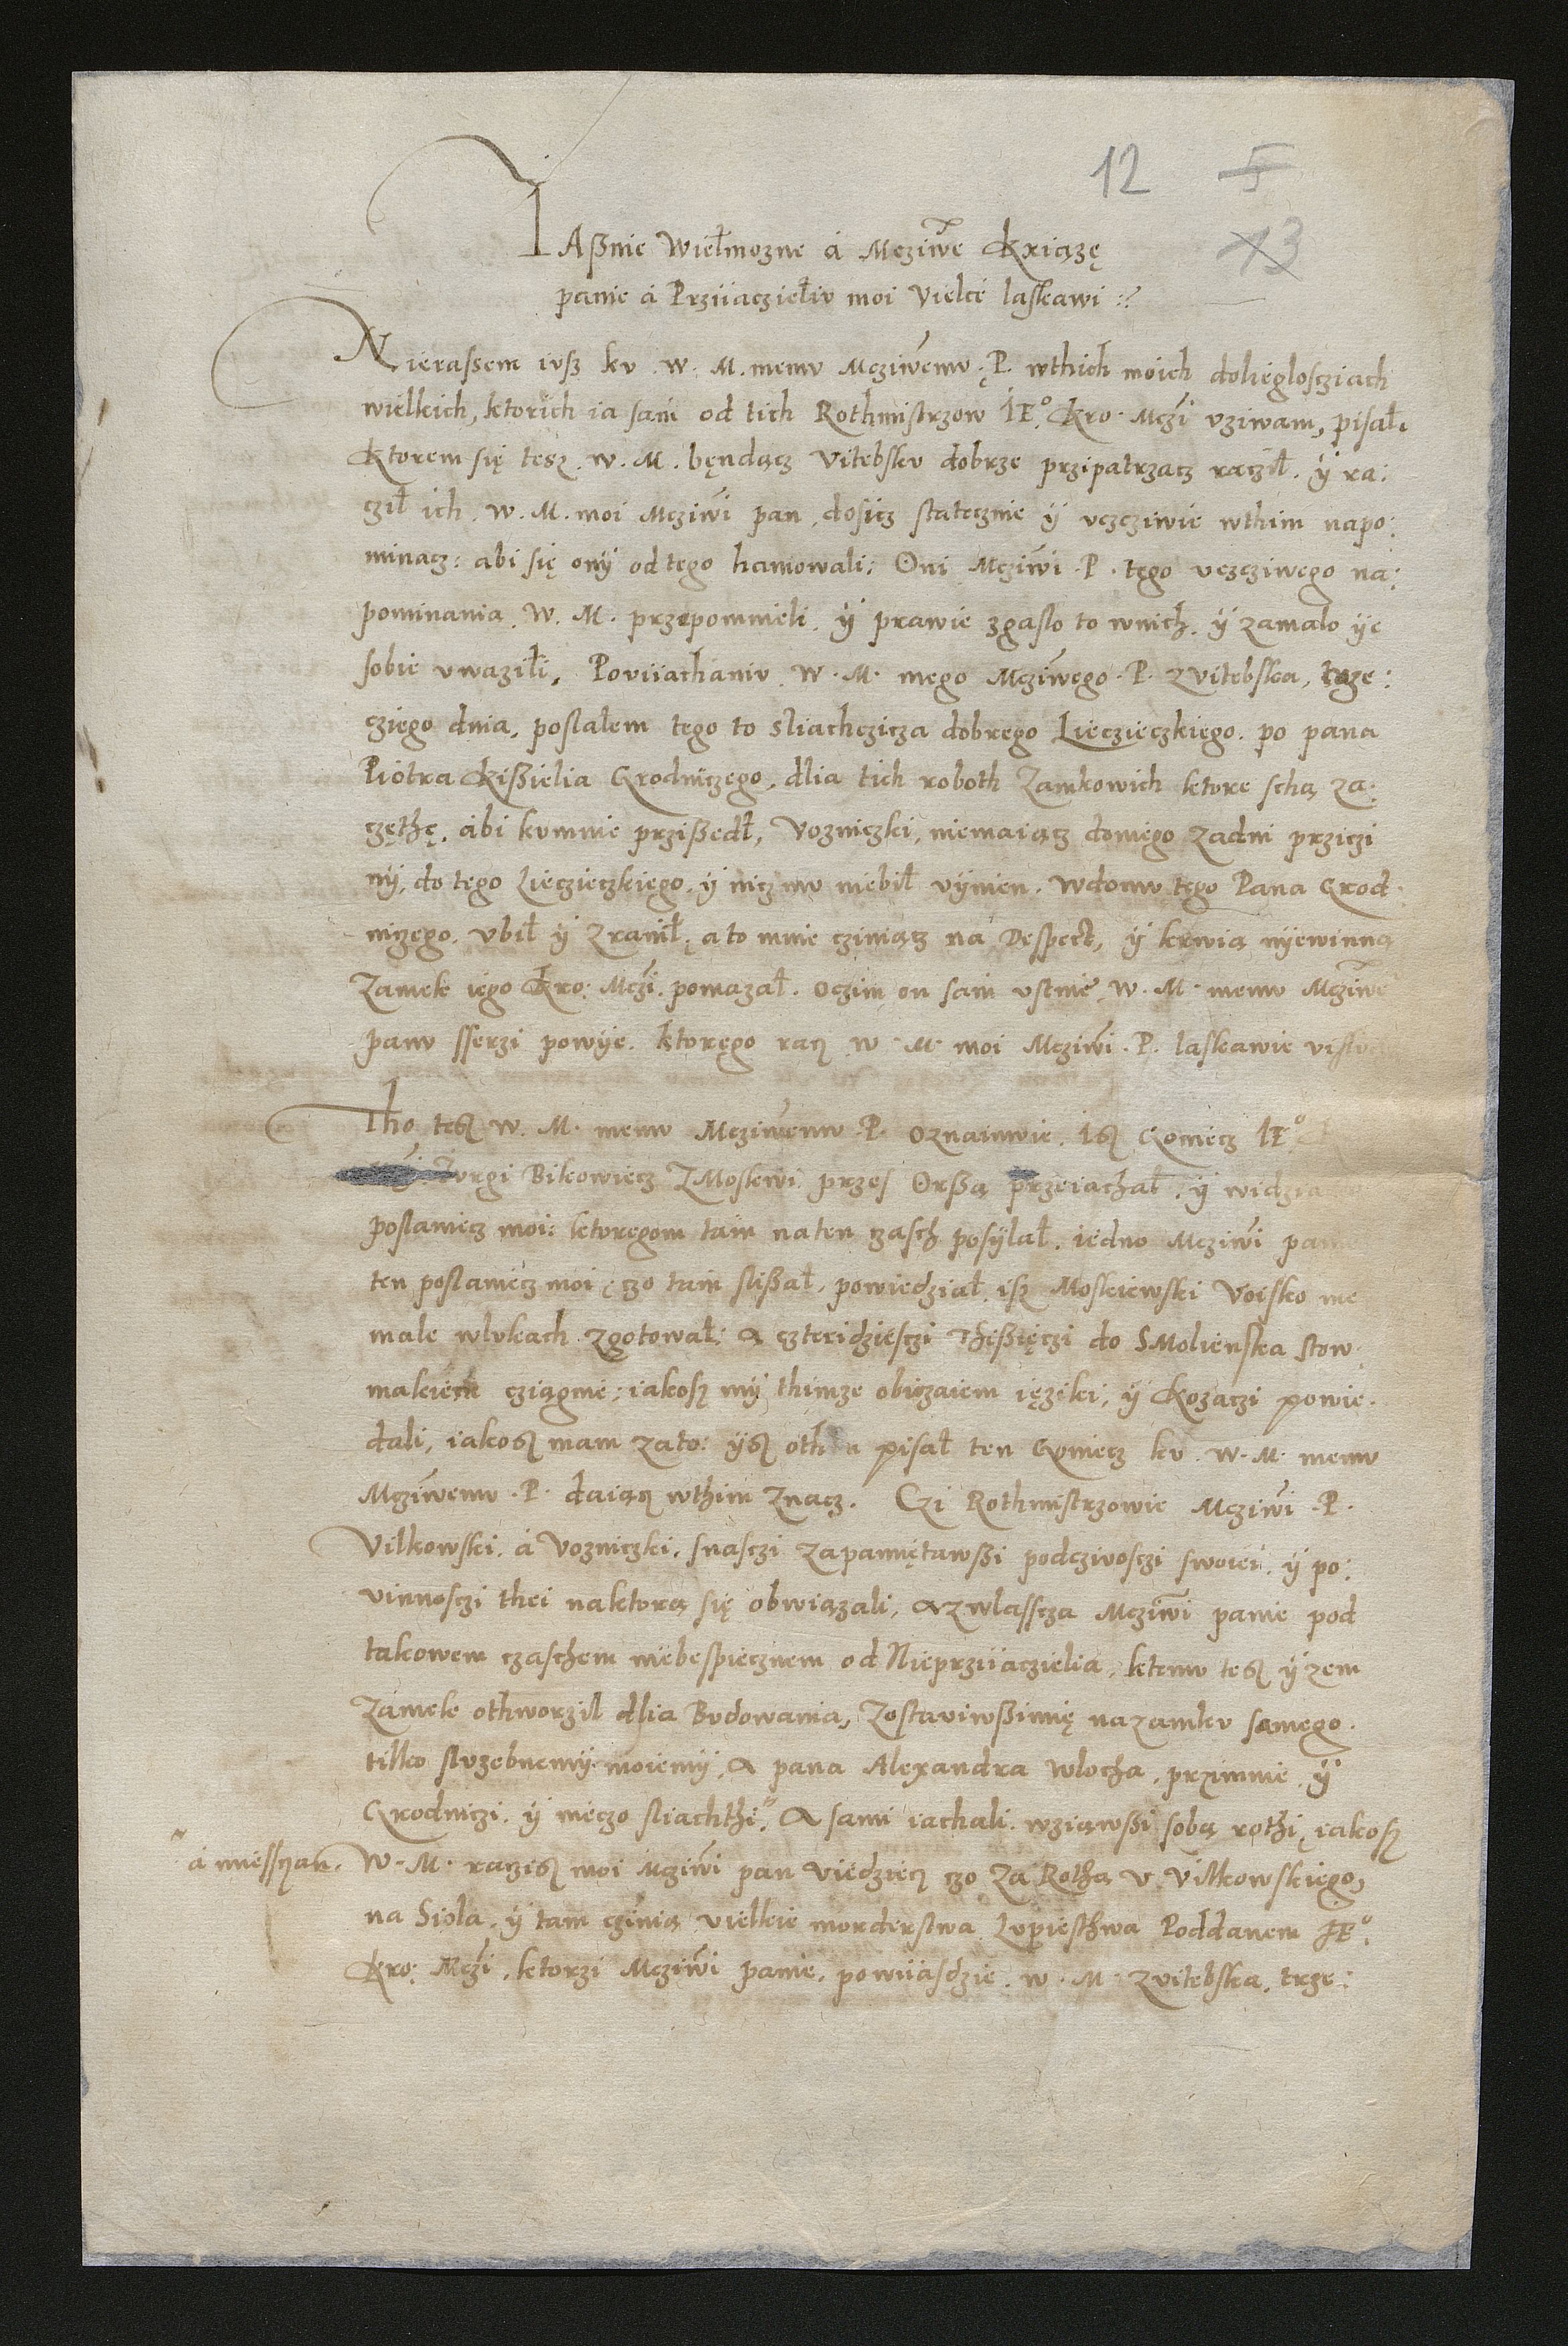 12 5
13
IAßnie Wielmozne á Mcziwe Kxiązę
panie á Prziiaczieliv moi Vielce laskawi :?
Nierassem ivsz kv . W. M. memv Mcziwemv . P. wthich moich dolieglosczięch
wielkich, ktorich ia sam od tich Rothmistrzow IE° Kro. Mczi vziwam, pisał.
Ktorem się tesz . W. M. będącz Vitebskv dobrze przipatrzacz racził. ÿ ra:
czil ich . W. M. moi Mcziwi pan . dosicz statecznie ÿ vczcziwie wthim napo:
minacz: abi się onÿ od tego hamowali: Oni Mcziwi . P. tego vczcziwego na:
pominania . W. M. przepomnieli . ÿ prawie zgaslo to wnich . ÿ zamalo ÿe
sobie vwazili, Poviiachaniv . W. M. mego Mcziwego . P. zvitebska, trze:
cziego dnia, poslalem tego to sliachczicza dobrego Liecziec­zkiego . po pana
Piotra Kißielia Grodniczego, dlia tich roboth Zamkowich ktore schą za:
częthę, ábi kvmnie przißedł, Vozniczki, niemaiącz doniego zadni prziczi
nÿ, do tego Lieczieczkiego . ÿ nicz mv niebil vÿnien . Wdomv tego Pana Grod:
niczego . vbil ÿ zranil, a to mnie cziniącz na Despect, ÿ krwią nÿewinną
Zamek iego Kro: Mczi . pomazał . Oczim on sam vstnie . W. M. memv Mcziwe
panv sserzi powÿe . ktorego racz . W. M. moi Mcziwi . P. laskawie
Tho tesz W. M. memv Mcziwemv . P. Oznaimvie . Isz Goniecz IE°
Ivrgi Bikowiecz ZMoskwi przes Orßą przeiachał . ÿ
poslaniecz moi: ktoregom tam na ten czasch posÿlał . iedno Mcziwi
ten poslaniecz moi, czo tam slißal, powiedział . isz Moskiewski Voisko nie
male wlvkach zgotował: A czteridziesczi Thißięczi do SMolienska stow:
makiem cziągnie: iakosz mÿ thimze obiczaiem ięziki, ÿ Kozaczi powie.
dali, iakosz mam zato: ÿsz pisał ten Goniecz kv . W. M. memv
Mcziwemv . P. daiącz wthim Znacz. Czi Rothmistrzowie Mcziwi . P.
Vilkowski . á Vozniczki . snasczi zapamiętawßi podczivosczi swoiei . ÿ po:
vinnosczi thei naktorą się obwiązali, A zwlasscza Mcziwi panie pod
takowem czaschem niebespiecznem od Nieprziiaczielia, ktemv tesz ÿzem
Zamek othworzil dlia Bvdowania, Zostaviwßimię nazamkv samego .
tilko slvzebnemÿ moiemÿ, A pana Alexandra Wlocha . przimnie . ÿ
Grodniczi . ÿ nieczo sliachthi." A sami iachali . wziąwßi sobą rothi, iakosz
" á miesczan.
W. M. raczisz moi Mcziwi pan Viedziecz czo Za Rotha v Vilkowskiego,
na Siola . ÿ tam czinią vielkie morderstwa Lvpiesthwa Poddanem IE°
Kro: Mczi . ktorzi Mcziwi panie . poviiasdzie . W. M. zvitebska . trze: